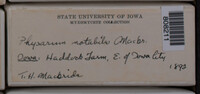 STATE UNIVERSITY OF IOWA
MYXOMYCETE COLLECTION
Physarum notabile Macbr.
Iowa: Haddock Farm, E. of Iowa City
1893
T. H. Macbride